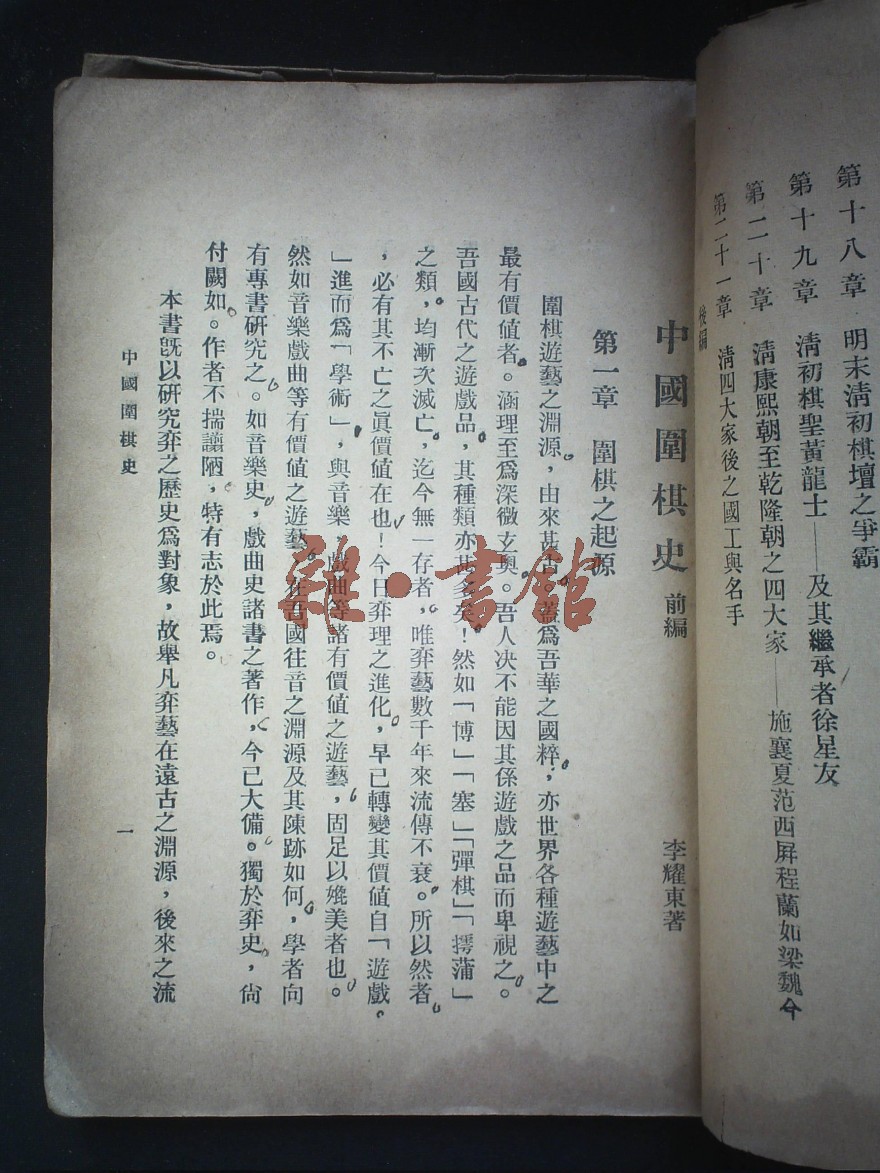 第十八章　明末淸初棋壇之爭霸
第十九章　淸初棋聖黃龍士——及其繼承者徐星友
第二十章　淸康熙朝至乾隆朝之四大家——施襄夏范西屏程蘭如梁魏今
第二十一章　淸四大家後之國工與名手
後編
中國圍棋史　前編　李耀東著
第一章　圍棋之起源
圍棋遊藝之淵源，由來甚古。蓋爲吾華之國粹，亦世界各種遊藝中之
最有價值者。涵理至爲深微玄奧。吾人决不能因其係遊戲之品而卑視之。
吾國古代之遊戲品，其種類亦甚多矣！然如「博」「塞」「彈棋」「摴蒲」
之類，均漸次滅亡，迄今無一存者，唯弈藝數千年來流傳不衰。所以然者
，必有其不亡之眞價值在也！今日弈理之進化，早已轉變其價値自「遊戲
」進而爲「學術」，與音樂　戲曲等諸有價値之遊藝，固足以媲美者也。
然如音樂戲曲等有價値之遊藝，在吾國往昔之淵源及其陳跡如何，學者向
有專書硏究之。如音樂史，戲曲史諸書之著作，今已大備。獨於弈史，尙
付闕如。作者不揣譾陋，特有志於此焉。
本書旣以硏究弈之歷史爲對象，故舉凡弈藝在遠古之淵源，後來之流
中國圍棋史
一
雜·書館